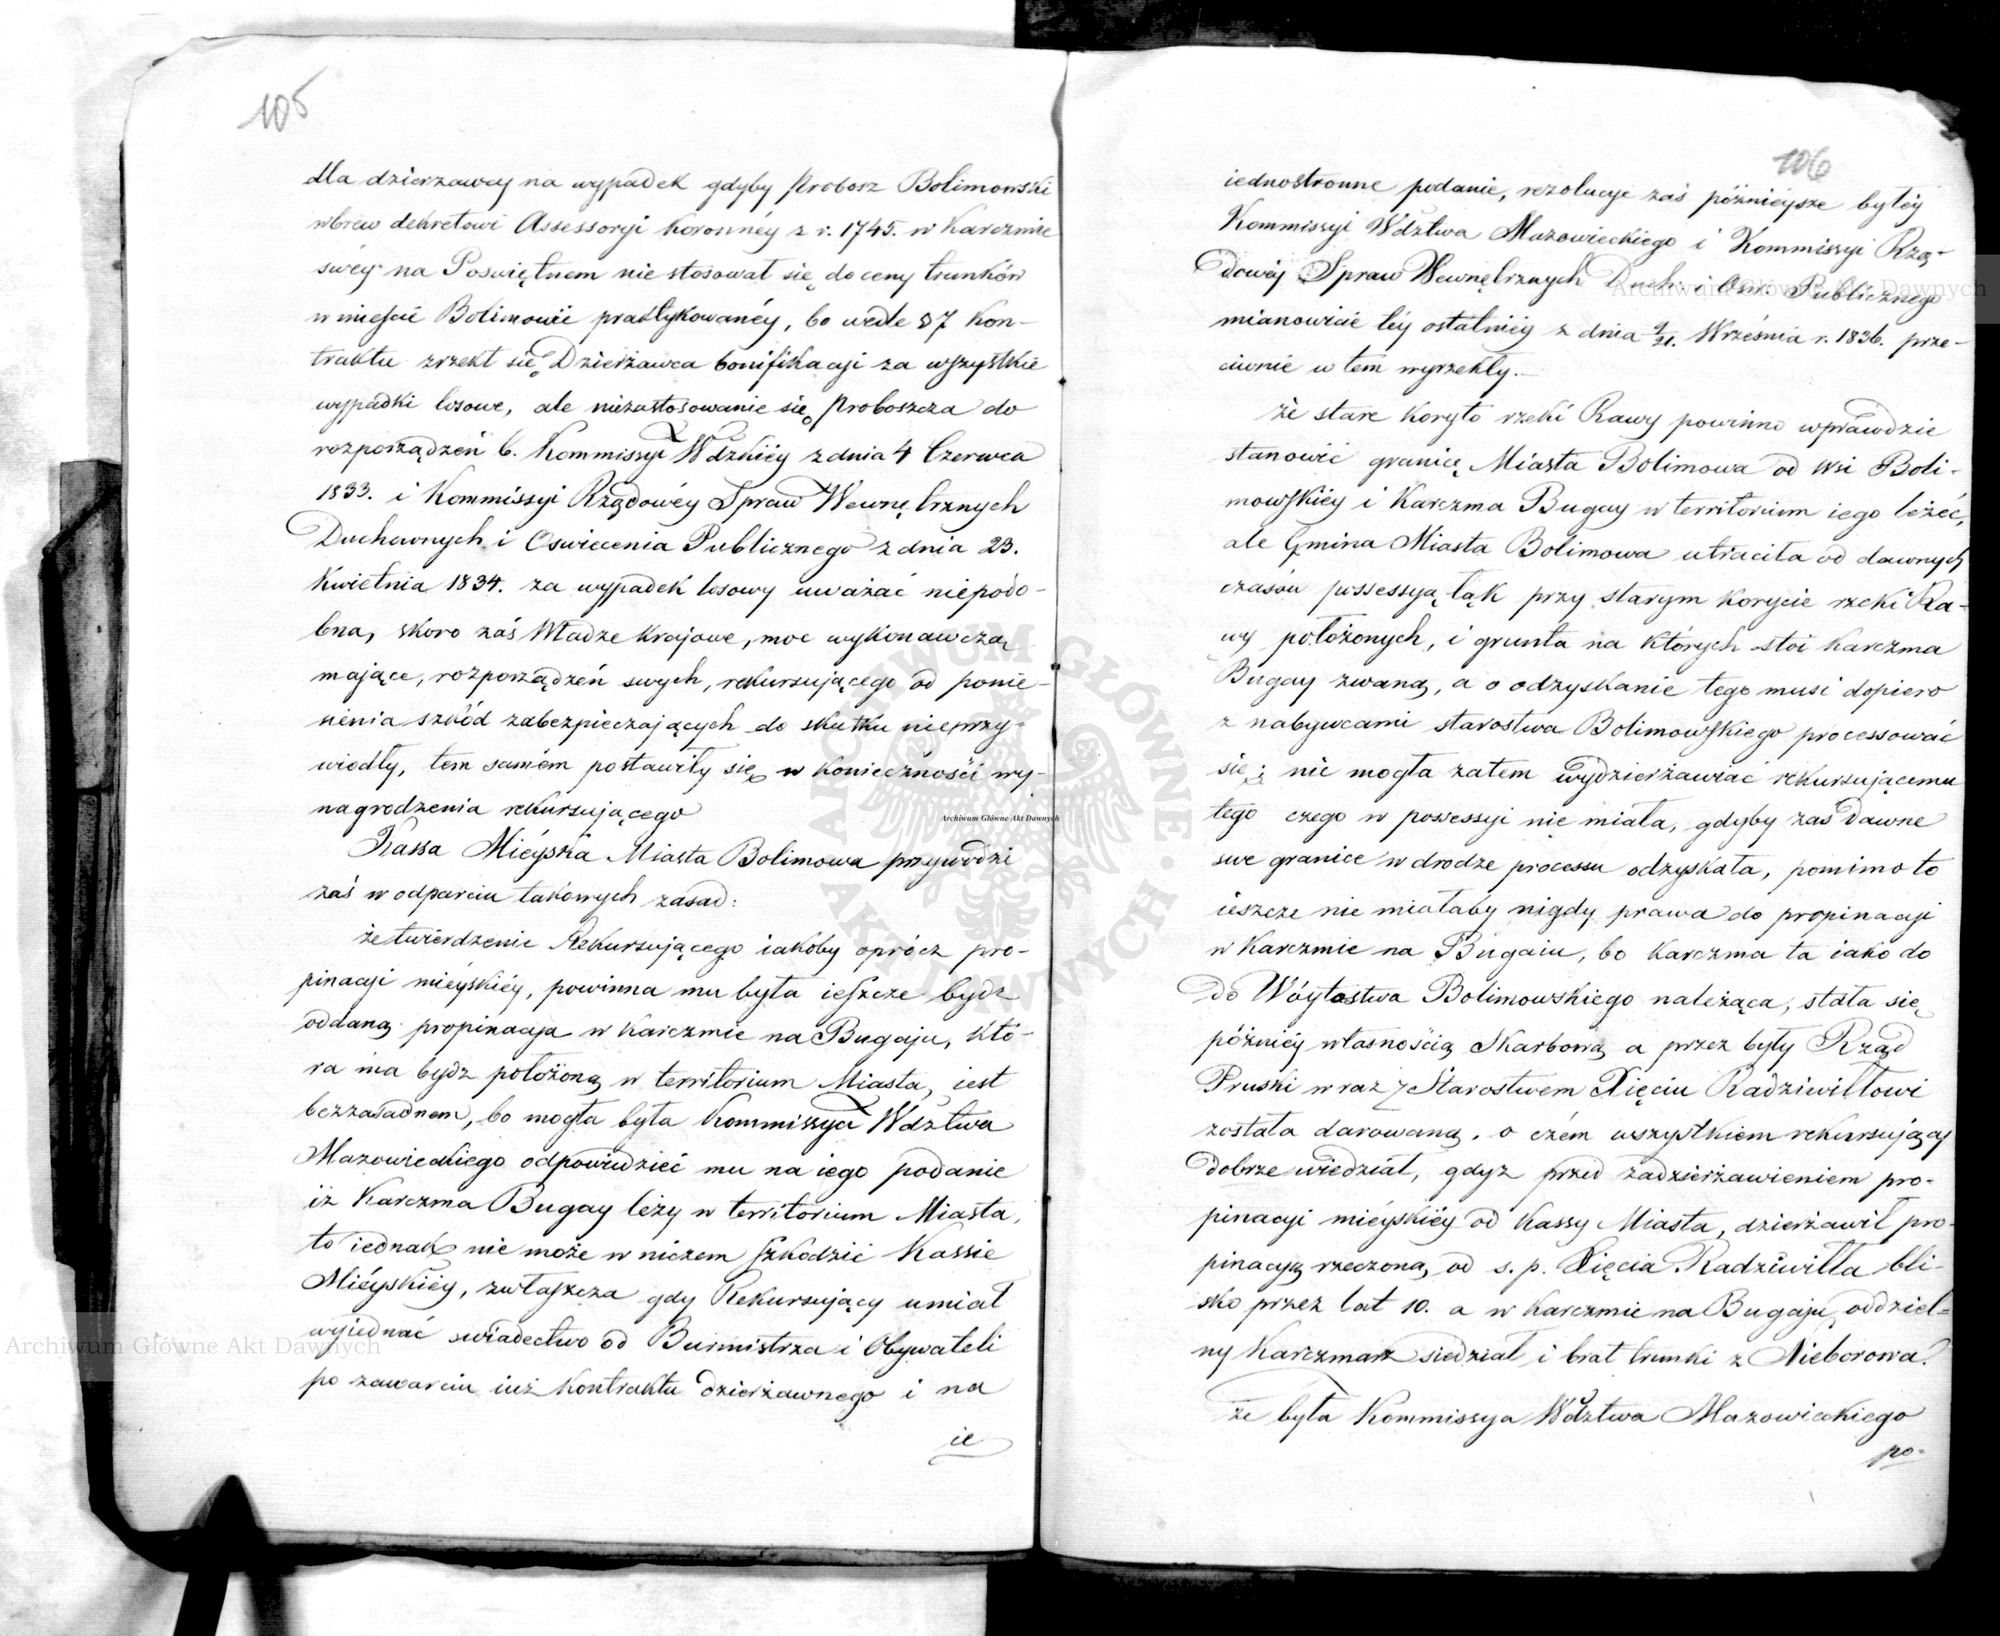 105
dla dzierzawcy na wypadek gdyby Probosz Bolimowski
wbrew dekretowi Assessoryi Koronnéy z r. 1745. w Karczmie
swéy na Poswiętnem nie stosował się do ceny trunków
w mieście Bolimowie praktykowanéy, bo wedle § 7 Kon-
traktu zrzekł się Dzierżawca bonifikacyi za wszystkie
wypadki losowe, ale niezastosowanie się Proboszcza do
rozporządzeń b. Kommissyi Wdzkiéy z dnia 4 Czerwca
1833. i Kommissyi Rządowéy Spraw Wewnętrznych
Duchownych i Oswiecenia Publicznego z dnia 23.
Kwietnia 1834. za wypadek losowy uważać niepodo-
bna, skoro zaś Władze krajowe, moc wykonawczą
mające, rozporządzeń swych, rekursującego od ponie-
sienia szkód zabezpieczających do skutku nieprzy-
wiodły, tem samém postawiły się w konieczności wy-
nagrodzenia rekursującego
Kassa Mieyska Miasta Bolimowa przywodzi
zaś w odparciu takowych zasad:
że twierdzenie Rekursującego iakoby oprócz pro-
pinacyi mieyskiéy, powinna mu była ieszcze bydz
oddaną propinacya w Karczmie na Bugaju, któ-
ra ma bydz położoną w territorium Miasta, iest
bezzasadnem, bo mogła była Kommissya Wdztwa
Mazowieckiego odpowiedzieć mu na iego podanie
iż Karczma Bugay leży w territorium Miasta,
to iednak nie może w niczem szkodzić Kassie
Mieyskiéy, zwłaszcza gdy Rekursujący umiał
wyjednać swiadectwo od Burmistrza i Obywateli
po zawarciu iuż Kontraktu dzierżawnego i na
ie
106
iednostronne podanie, rezolucye zaś późnieysze byłéy
Kommissyi Wdztwa Mazowieckiego i Kommissyi Rzą-
dowéy Spraw Wewnętrznych Duch: i Osw. Publicznego
mianowicie téy ostatniéy z dnia 9/21. Września r. 1836. prze-
ciwnie w tem wyrzekły.
że stare Koryto rzeki Rawy powinno wprawdzie
stanowić granicę Miasta Bolimowa od wsi Boli-
mowskiéy i Karczma Bugay w territorium iego leżéć,
ale Gmina Miasta Bolimowa utraciła od dawnych
czasów possessyą łąk przy starym korycie rzeki Ra-
wy położonych, i grunta na których stoi Karczma
Bugay zwaną, a o odzyskanie tego musi dopiero
z nabywcami starostwa Bolimowskiego processować
się; nie mogła zatem wydzierżawiać rekursującemu
tego czego w possessyi nie miała, gdyby zaś dawne
swe granice w drodze processu odzyskała, pomimo to
ieszcze nie miałaby nigdy prawa do propinacyi
w Karczmie na Bugaiu, bo Karczma ta iako do
do Wóytostwa Bolimowskiego należąca, stała się
późniéy własnością Skarbową a przez były Rząd
Pruski wraz z Starostwem Xięciu Radziwiłłowi
została darowaną, o czém wszystkiem rekursujący
dobrze wiedział, gdyż przed zadzierżawieniem pro-
pinacyi mieyskiéy od Kassy Miasta, dzierżawił pro-
pinacyą rzeczoną od s. p. Xięcia Radziwiłła bli-
sko przez lat 10. a w Karczmie na Bugaju oddziel-
ny Karczmarz siedział i brał trunki z Nieborowa.
że była Kommissya Wdztwa Mazowieckiego
po-
Archiwum Główne Akt Dawnych
Archiwum Główne Akt Dawnych
Archiwum Główne Akt Dawnych
ARCHIWUM GŁÓWNE AKT DAWNYCH